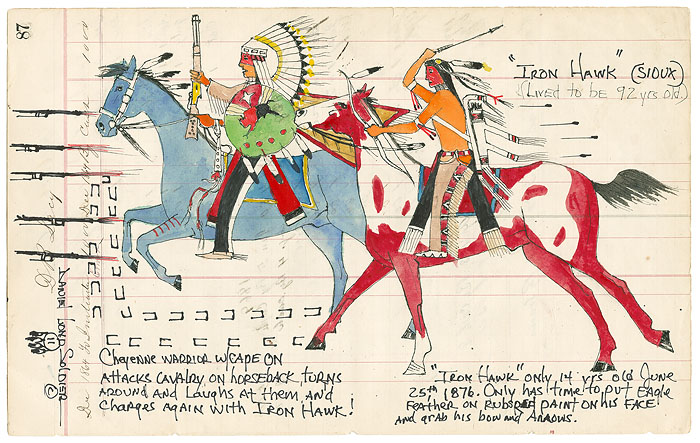 87
"IRON HAWK" (SIOUX)
(LIVED to be 92 yrs old)
DANIEL LONG SOLDIER
©
Cheyenne WARRIOR W/CAPE ON
ATTACKS CAVALRY ON HORSEBACK, TURNS
AROUND AND LAUGHS AT THEM AND
CHARGES AGAIN WITH IRON HAWK!
"IRON HAWK" only 14 yrs old JUNE
25th, 1876. Only has time to put EAGLE
FEATHER ON RUBS RED PAINT ON HIS FACE
AND grab his bow and ARROWS.